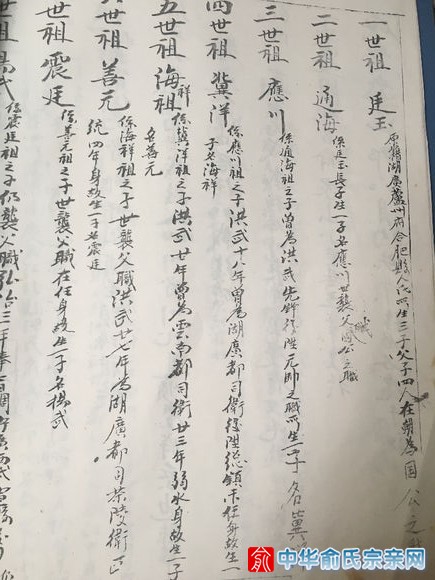 一世祖 廷玉 原籍湖廣蘆州府合肥縣人氏所生三子父子四人在朝為国公之
二世祖 通海 係廷玉長子生一子名應川世襲父職公之職
三世祖 應川 係通海祖之子曾為洪武先鋒後陞元帥之職所生一子名冀
四世祖 冀洋 係應川祖之子洪武十八年曾為湖廣都司衛後陞總領
子名海祥
五世祖 海祥 係冀洋祖之子洪武廿年曾為雲南都司衛廿三年弱水身故生一子
名善元
世祖 善元 係海祥祖之子世襲父職洪武廿七年為湖廣都司茶陵衛
統四年身故生一子名震廷
世祖 震廷 係善元祖之子世襲父職在任身故生一子名揚武
世祖 揚武 係震廷祖之子仍襲父職弘治三年奉旨調
俞 中华俞氏宗亲网